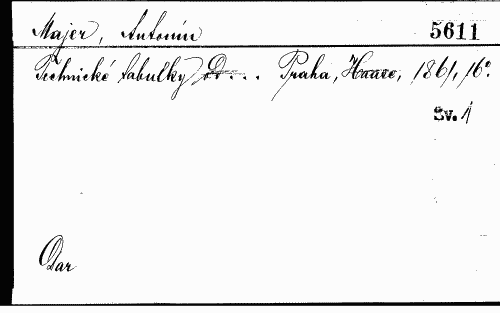 Majer, Antonín 5611
Technické tabulky od... Praha, Haase, 1861, 16°.
Sv. 1
Dar